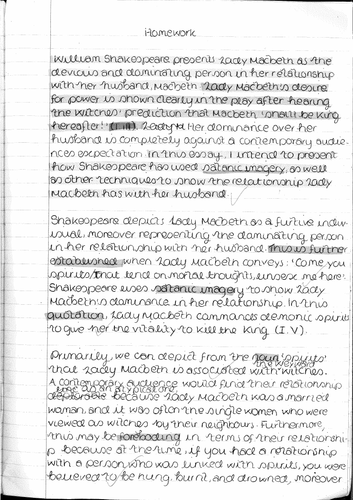 Homework
William Shakespeare presents Lady Macbeth as the
devious and dominating person in her relationship
with her husband, Macbeth. Lady Macbeth's desire
for power is shown clearly in the play after hearing
the witches' prediction that Macbeth 'shalt be King
hereafter!' Lady M Her dominance over her
husband is completely against a contemporary audie-
nces expectation in this essay. I intend to present
how Shakespeare has used satanic imagery, as well
as other techniques to show the relationship Lady
Macbeth has with her husband.
Shakespeare depicts Lady Macbeth as a furtive indiv-
idual, moreover representing the dominating person
in her relationship with her husband. This is further
established when Lady Macbeth conveys: 'Come, you
spirits that tend on mortal thoughts, unsex me here'.
Shakespeare uses satanic imagery to show Lady
Macbeth's dominance in her relationship. In this
quotation, Lady Macbeth commands demonic spirits
to give her the vitality to kill the King (I.V).
Primarily, we can depict from the noun 'spirits'
that Lady Macbeth is associated with the weyward witches.
A contemporary audience would find their relationship
deplorable because Lady Macbeth was a married
woman, and it was often the single women who were
viewed as witches by their neighbours. Furthermore,
this may be foreboding in terms of their relationshi-
p because at the time, if you had a relationship
with a person who was linked with spirits, you were
believed to be hung, burnt, and drowned, moreover